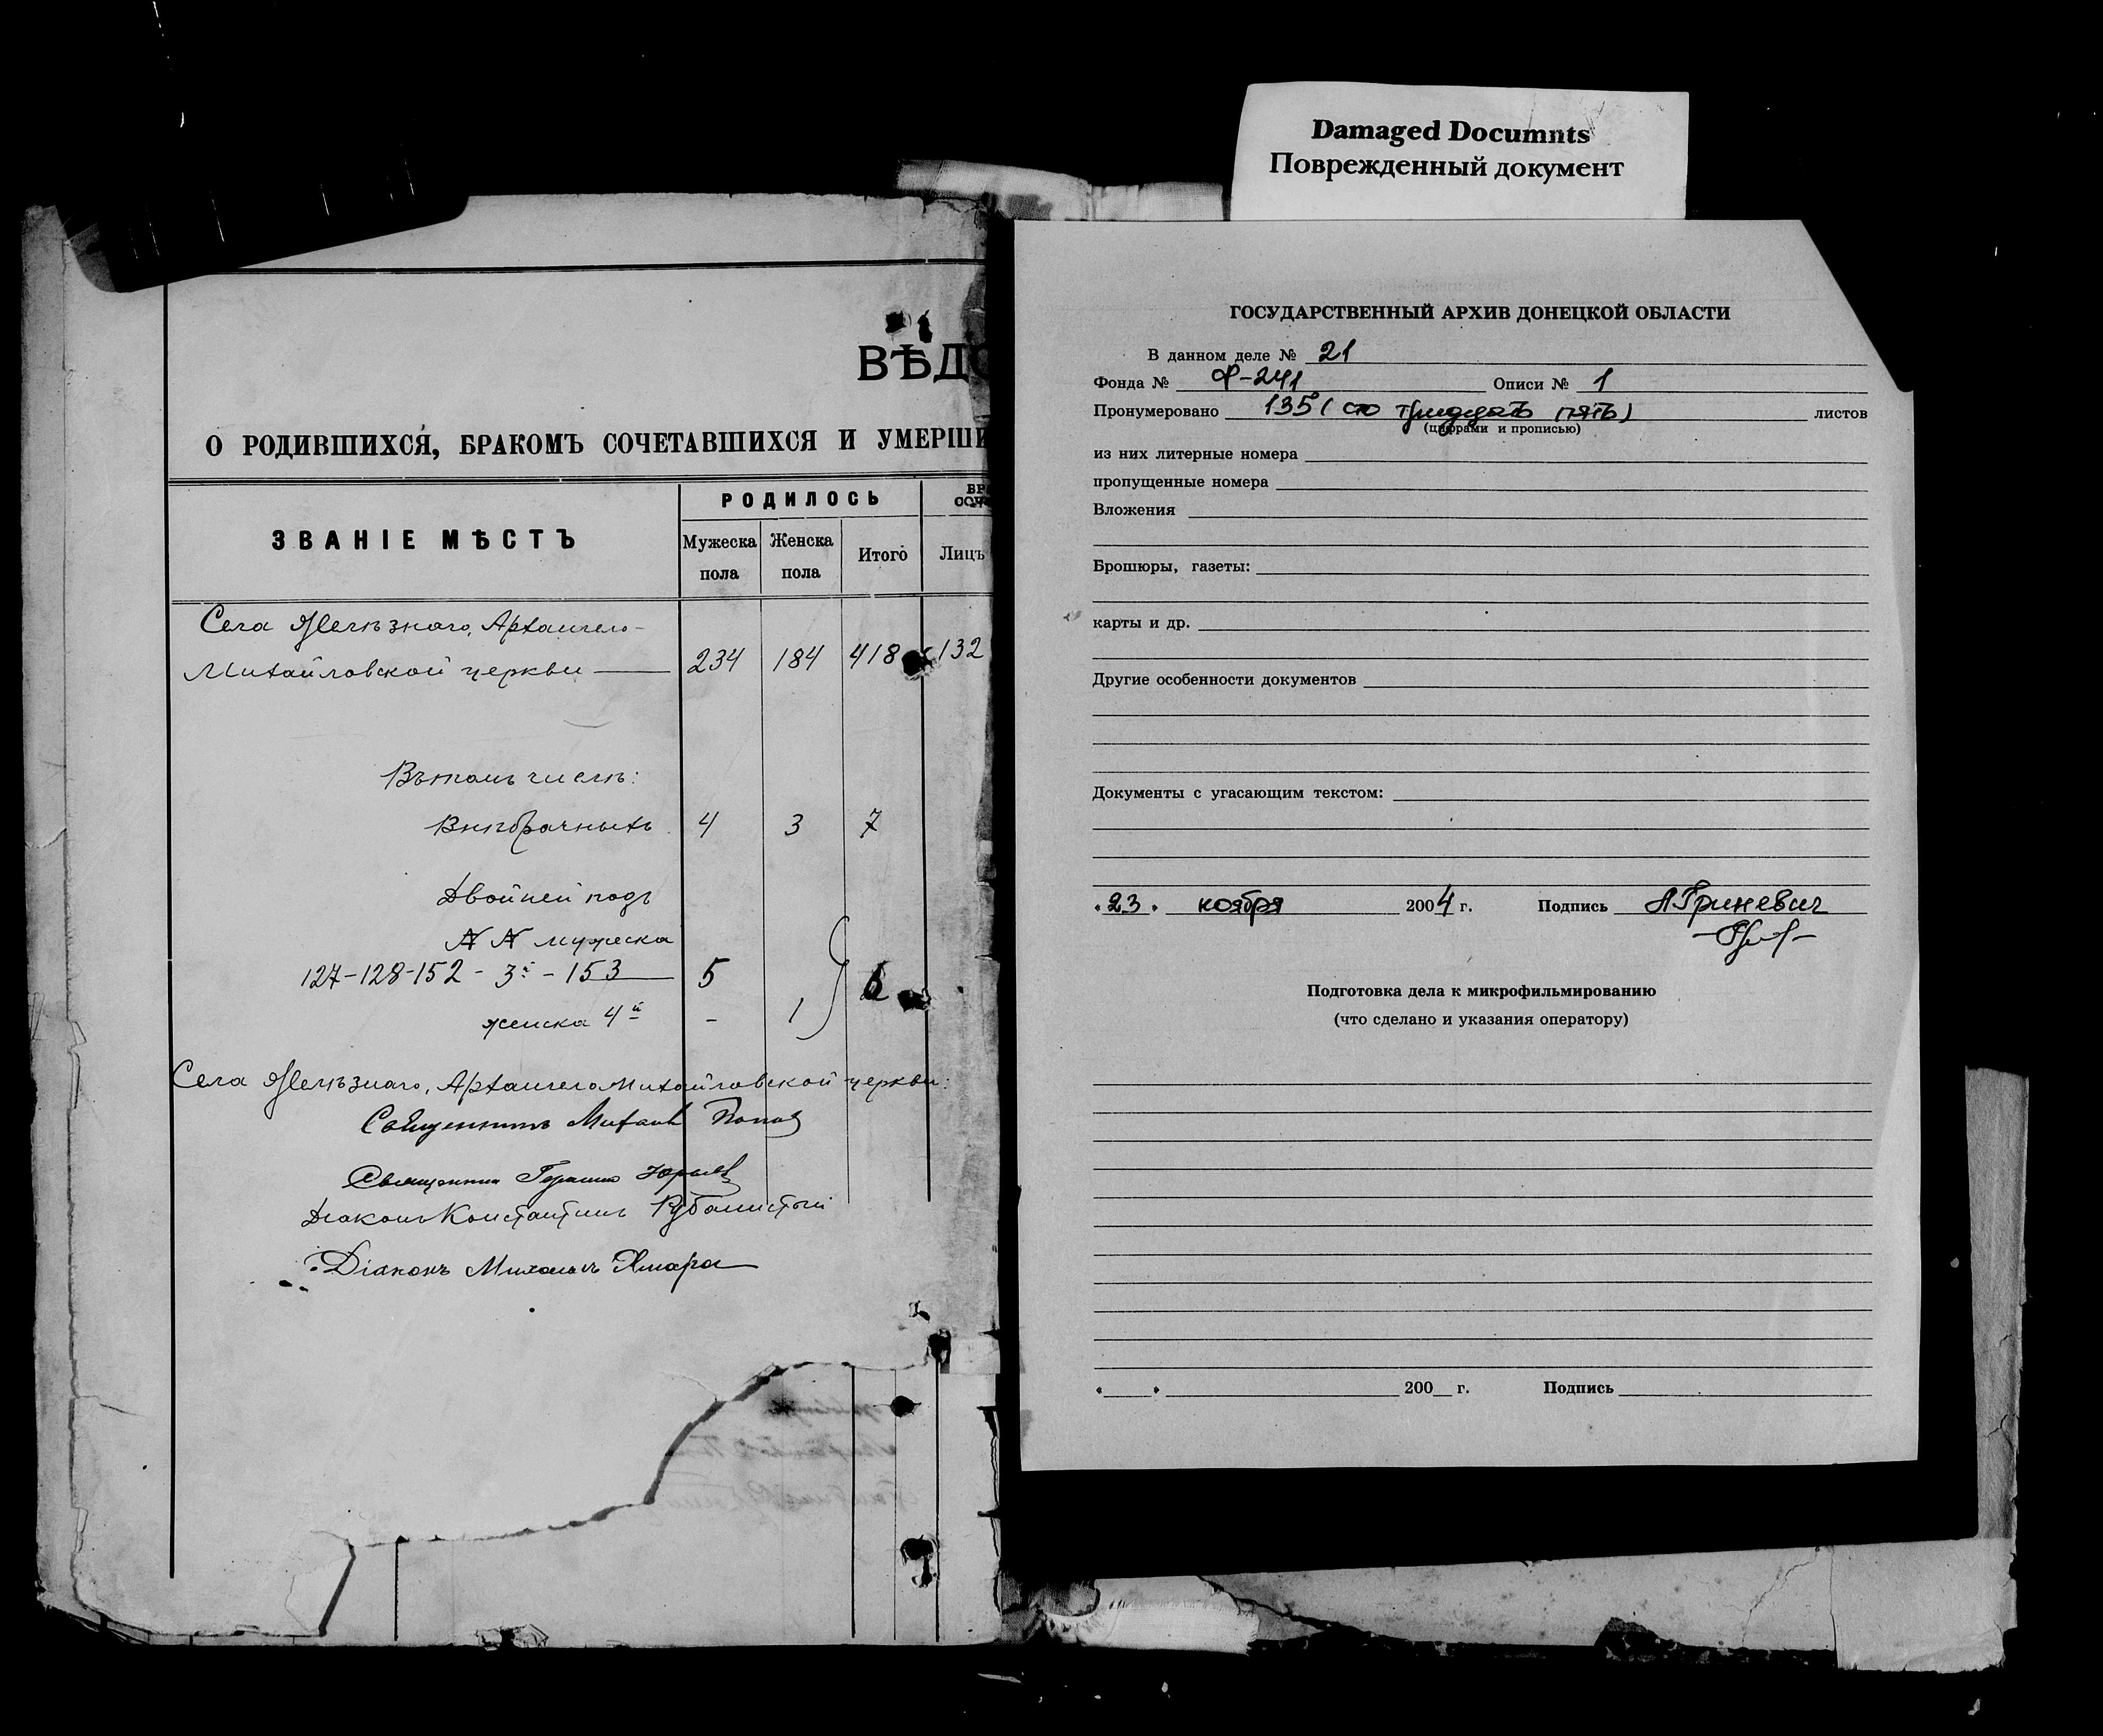 Damaged Documnts
Поврежденный документ
ВѢДО
О РОДИВШИХСЯ, БРАКОМЪ СОЧЕТАВШИХСЯ И УМЕРШИ
ЗВАНІЕ МѢСТЪ
РОДИЛОСЬ
Мужеска пола
Женска пола
Итого
Лицъ
Села Желѣзнаго, Архангело-
Михайловской церкви 234 184 418 132
Въ томъ числѣ:
Внѣбрачныхъ 4 3 7
Двойней подъ
№ № мужеска
127-128-152 - 3й - 153 5 6
женска 4й - 1
Села Желѣзнаго, Архангело Михайловской церкви:
Священникъ Михаилъ Попов
Священник Юрьев
Діаконъ Константинъ Рубанистый
Діаконъ Михаилъ
ГОСУДАРСТВЕННЫЙ АРХИВ ДОНЕЦКОЙ ОБЛАСТИ
В данном деле № 21
Фонда № Ф-241 Описи № 1
Пронумеровано 135 (сто тридцать пять) листов
(цифрами и прописью)
из них литерные номера
пропущенные номера
Вложения
Брошюры, газеты:
карты и др.
Другие особенности документов
Документы с угасающим текстом:
«23» ноября 2004 г. Подпись А Гриневич
Подготовка дела к микрофильмированию
(что сделано и указания оператору)
« » 200 г. Подпись